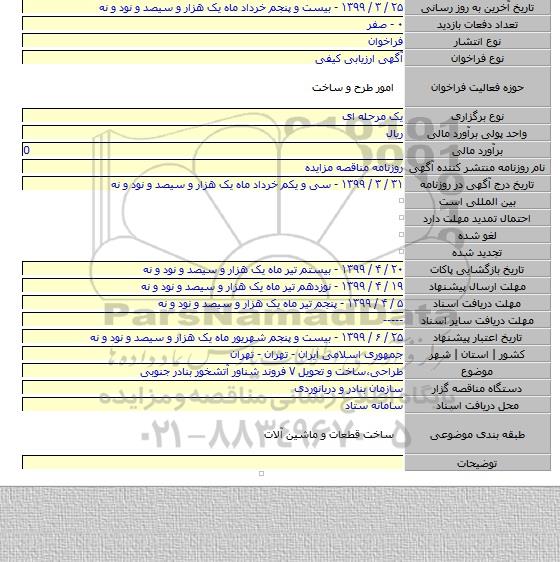 تاریخ آخرین به روز رسانی ۲۵ / ۳ / ۱۳۹۹ - بیست و پنجم خرداد ماه یک هزار و سیصد و نود و نه
تعداد دفعات بازدید ۰ - صفر
نوع انتشار فراخوان
نوع فراخوان آگهی ارزیابی کیفی
حوزه فعالیت فراخوان امور طرح و ساخت
نوع برگزاری یک مرحله ای
واحد پولی برآورد مالی ریال
برآورد مالی 0
نام روزنامه منتشر کننده آگهی روزنامه مناقصه مزایده
تاریخ درج آگهی در روزنامه ۳۱ / ۳ / ۱۳۹۹ - سی و یکم خرداد ماه یک هزار و سیصد و نود و نه
بین المللی است
احتمال تمدید مهلت دارد
لغو شده
تجدید شده
تاریخ بازگشایی پاکات ۲۰ / ۴ / ۱۳۹۹ - بیستم تیر ماه یک هزار و سیصد و نود و نه
مهلت ارسال پیشنهاد ۱۹ / ۴ / ۱۳۹۹ - نوزدهم تیر ماه یک هزار و سیصد و نود و نه
مهلت دریافت اسناد ۵ / ۴ / ۱۳۹۹ - پنجم تیر ماه یک هزار و سیصد و نود و نه
مهلت دریافت سایر اسناد -----
تاریخ اعتبار پیشنهاد ۲۵ / ۶ / ۱۳۹۹ - بیست و پنجم شهریور ماه یک هزار و سیصد و نود و نه
کشور | استان | شهر جمهوری اسلامی ایران - تهران - تهران
موضوع طراحی،ساخت و تحویل ۷ فروند شناور آتشخور بنادر جنوبی
دستگاه مناقصه گزار سازمان بنادر و دریانوردی
محل دریافت اسناد سامانه ستاد
طبقه بندی موضوعی ساخت قطعات و ماشین آلات
توضیحات
ParsNamadData
پایگاه اطلاع رسانی مناقصه و مزایده
۰۲۱-۸۸۳۴۹۶۷۰-۵